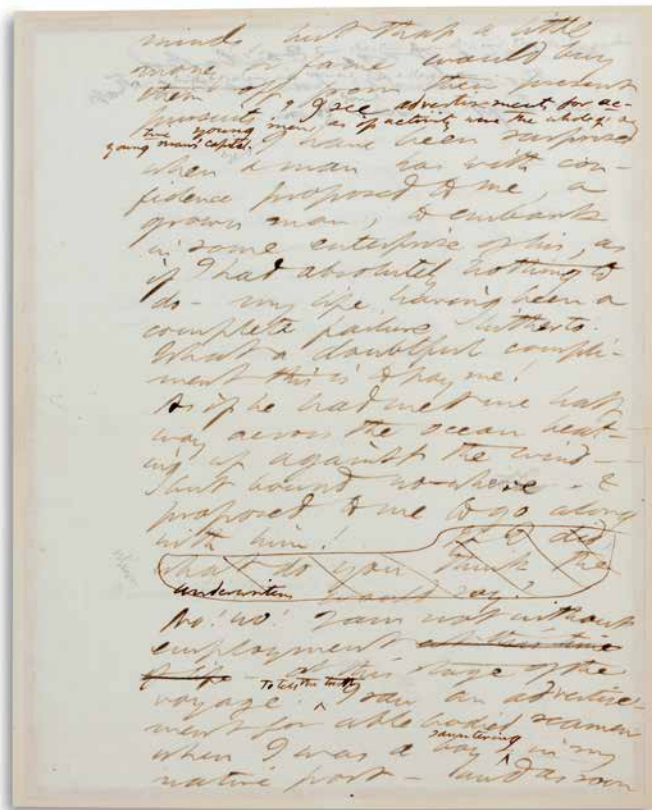 minds, but that a little
money or fame would buy
them off from their present
pursuit. I see advertisements for ac-
tive young men, as if activity were the whole of a
young man's capital. I have been surprised
when a man has with con-
fidence proposed to me, a
grown man, to embark
in some enterprise of his, as
if I had absolutely nothing to
do— my life having been a
complete failure hitherto.
What a doubtful compli-
ment this is to pay me!
As if he had met me half
way across the ocean beat-
ing up against the wind—
but bound nowhere— &
proposed to me to go along
with him! If I did
what do you think the
underwriters would say?
No! no! I am not without
employment at this time
of life— at this stage of the
voyage. To tell the truth, I saw an advertise-
ment for able bodied seamen
when I was a boy, sauntering in my
native port— and as soon